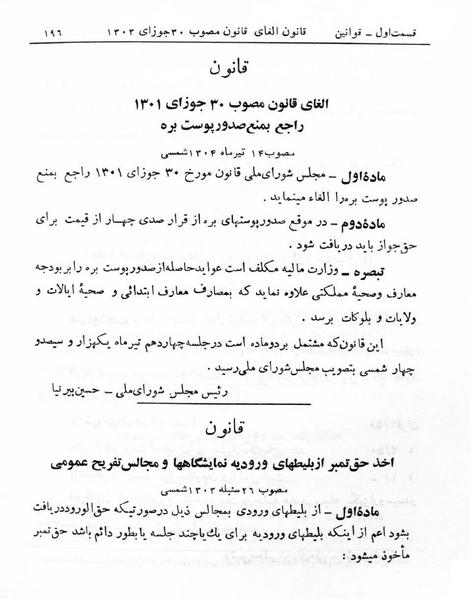 قسمت اول – قوانین    قانون الغای قانون مصوب ۳۰ جوزای ۱۳۰۳    ۱۹۶
قانون
الغای قانون مصوب ۳۰ جوزای ۱۳۰۱
راجع بمنع صدور پوست بره
مصوب ۱۴ تیرماه ۱۳۰۴ شمسی
مادهٔ اول – مجلس شورای ملی قانون مورخ ۳۰ جوزای ۱۳۰۱ راجع بمنع
صدور پوست بره را الغاء مینماید .
مادهٔ دوم – در موقع صدور پوستهای بره از قرار صدی چهار از قیمت برای
حق جواز باید دریافت شود .
تبصره – وزارت مالیه مکلف است عواید حاصله از صدور پوست بره را بر بودجه
معارف وصحیهٔ مملکتی علاوه نماید که بمصارف معارف ابتدائی و صحیهٔ ایالات و
ولایات و بلوکات برسد .
این قانون که مشتمل بر دو ماده است در جلسه چهاردهم تیر ماه یکهزار و سیصدو
چهار شمسی بتصویب مجلس شورای ملی رسید .
رئیس مجلس شورای ملی – حسین پیرنیا
قانون
اخذ حق تمبر از بلیطهای ورودیه نمایشگاهها و مجالس تفریح عمومی
مصوب ۲۶ سنبله ۱۳۰۳ شمسی
مادهٔ اول – از بلیطهای ورودی بمجالس ذیل در صورتیکه حق الورود دریافت
بشود اعم از اینکه بلیطهای ورودیه برای یك یا چند جلسه یا بطور دائم باشد حق تمبر
مأخوذ میشود :